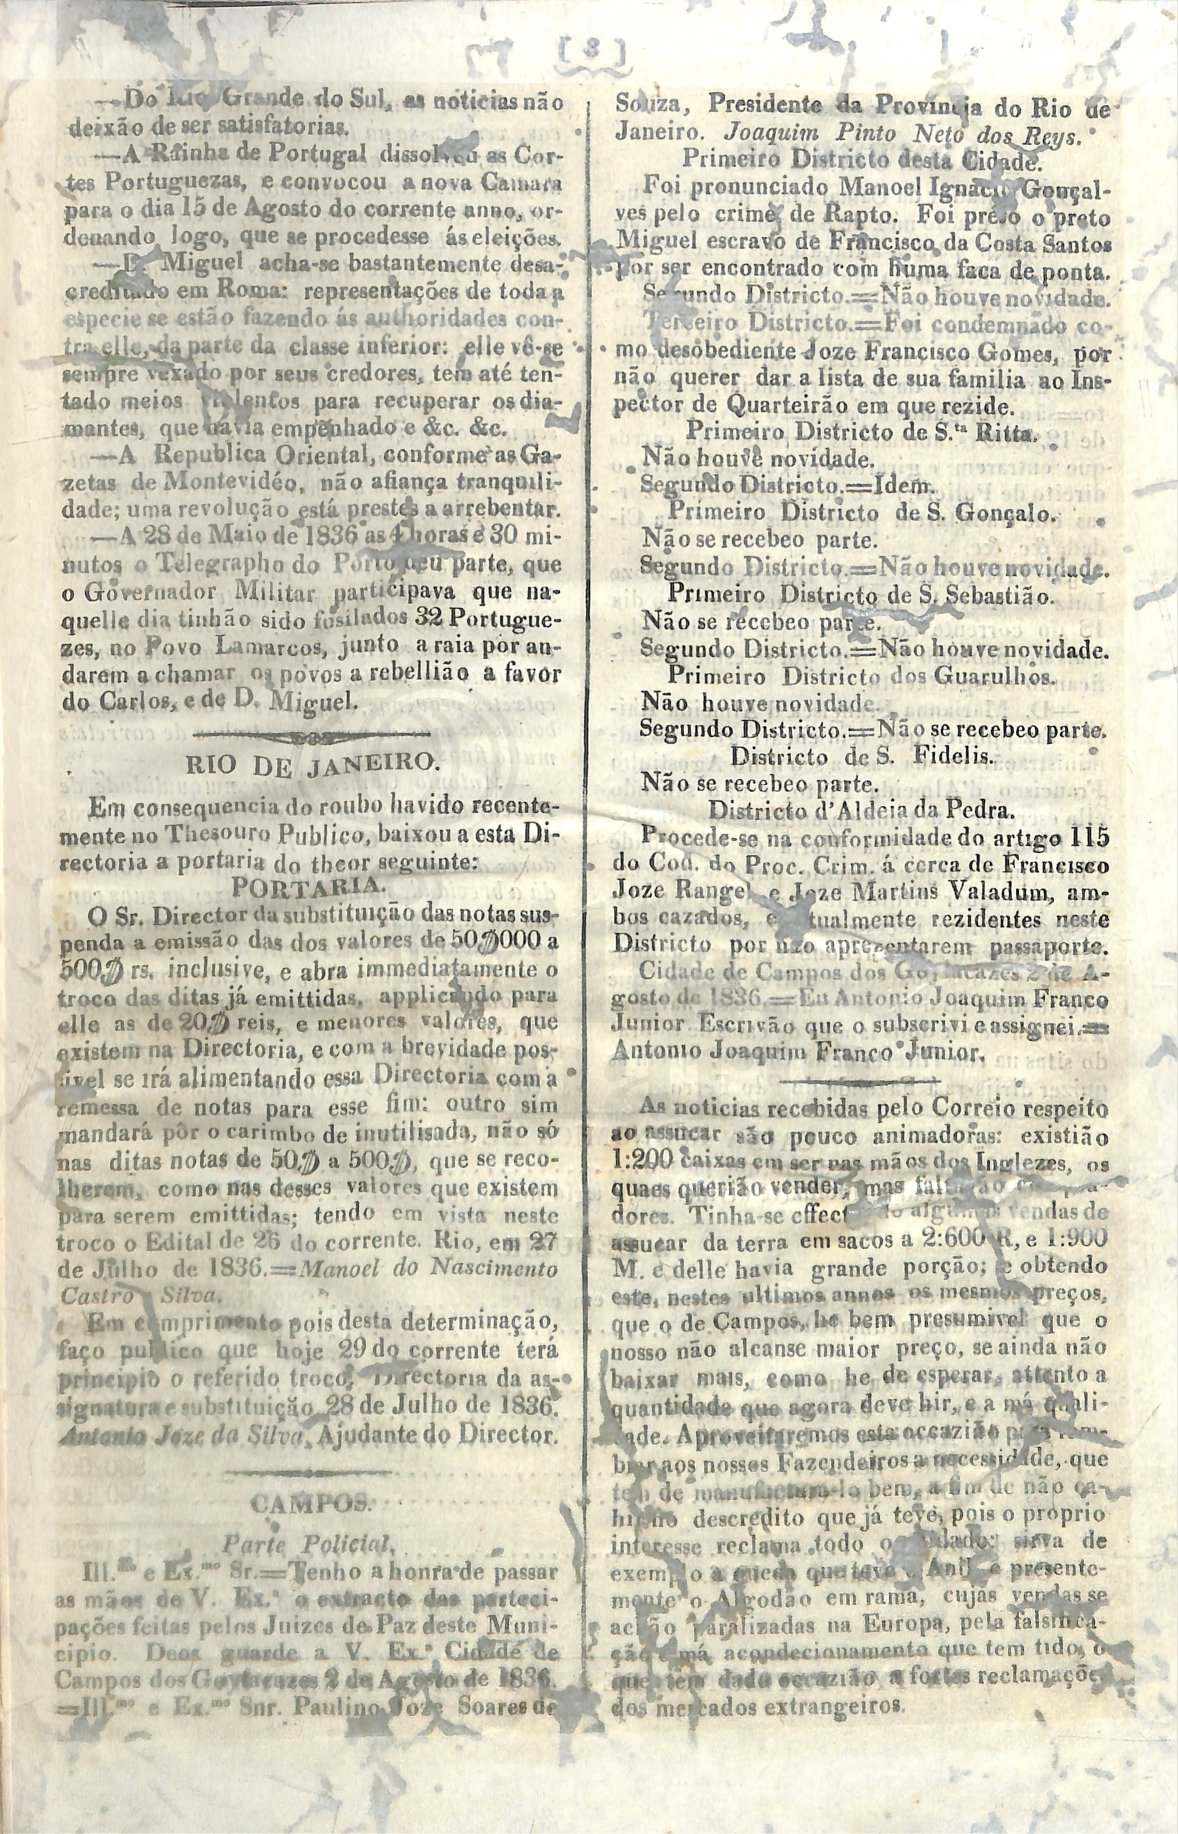 [ 3 ]
—Do Rio Grande do Sul, as noticias não
deixão de ser satisfatorias.
—A Rainha de Portugal dissolveu as Cor-
tes Portuguezas, e convocou a nova Camara
para o dia 15 de Agosto do corrente anno, or-
denando logo, que se procedesse ás eleições.
—D. Miguel acha-se bastantemente desa-
creditado em Roma: representações de toda a
especie se estão fazendo ás authoridades con-
tra elle, da parte da classe inferior: elle vê-se
sempre vexado por seus credores, tem até ten-
tado meios violentos para recuperar os dia-
mantes, que havia empenhado e &c. &c.
—A Republica Oriental, conforme as Ga-
zetas de Montevidéo, não afiança tranquili-
dade; uma revolução está prestes a arrebentar.
—A 28 de Maio de 1836 as 4 horas e 30 mi-
nutos o Telegrapho do Porto deu parte, que
o Governador Militar participava que na-
quelle dia tinhão sido fusilados 32 Portugue-
zes, no Povo Lamarcos, junto a raia por an-
darem a chamar os povos a rebellião a favor
do Carlos, e de D. Miguel.
RIO DE JANEIRO.
Em consequencia do roubo havido recente-
mente no Thesouro Publico, baixou a esta Di-
rectoria a portaria do theor seguinte:
PORTARIA.
O Sr. Director da substituição das notas sus-
penda a emissão das dos valores de 50$000 a
500$ rs. inclusive, e abra immediatamente o
troco das ditas já emittidas, applicando para
elle as de 20$ reis, e menores valores, que
existem na Directoria, e com a brevidade pos-
sivel se irá alimentando essa Directoria com a
remessa de notas para esse fim: outro sim
mandará pôr o carimbo de inutilisada, não só
nas ditas notas de 50$ a 500$, que se reco-
lherem, como nas desses valores que existem
para serem emittidas; tendo em vista neste
troco o Edital de 26 do corrente. Rio, em 27
de Julho de 1836.=Manoel do Nascimento
Castro Silva.
Em comprimento pois desta determinação,
faço publico que hoje 29 do corrente terá
principio o referido troco. Directoria da as-
signatura e substituição 28 de Julho de 1836.
Antonio Joze da Silva, Ajudante do Director.
CAMPOS.
Parte Policial.
Ill.mo e Ex.mo Sr.=Tenho a honra de passar
as mãos de V. Ex.a o extracto das parteci-
pações feitas pelos Juizes de Paz deste Muni-
cipio. Deos guarde a V. Ex.a Cidade de
Campos dos Goytacazes 2 de Agosto de 1836.
=Ill.mo e Ex.mo Snr. Paulino Joze Soares de
Souza, Presidente da Provincia do Rio de
Janeiro. Joaquim Pinto Neto dos Reys.
Primeiro Districto desta Cidade.
Foi pronunciado Manoel Ignacio Gonçal-
ves pelo crime de Rapto. Foi prezo o preto
Miguel escravo de Francisco da Costa Santos
por ser encontrado com huma faca de ponta.
Segundo Districto.=Não houve novidade.
Terceiro Districto.=Foi condemnado co-
mo desobediente Joze Francisco Gomes, por
não querer dar a lista de sua familia ao Ins-
pector de Quarteirão em que rezide.
Primeiro Districto de S.ta Ritta.
Não houve novidade.
Segundo Districto.=Idem.
Primeiro Districto de S. Gonçalo.
Não se recebeo parte.
Segundo Districto.=Não houve novidade.
Primeiro Districto de S. Sebastião.
Não se recebeo parte.
Segundo Districto.=Não houve novidade.
Primeiro Districto dos Guarulhos.
Não houve novidade.
Segundo Districto.=Não se recebeo parte.
Districto de S. Fidelis.
Não se recebeo parte.
Districto d'Aldeia da Pedra.
Procede-se na conformidade do artigo 115
do Cod. do Proc. Crim. á cerca de Francisco
Joze Rangel e Joze Martins Valadum, am-
bos cazados, e actualmente rezidentes neste
Districto por não aprezentarem passaporte.
Cidade de Campos dos Goytacazes 2 de A-
gosto de 1836.=Eu Antonio Joaquim Franco
Junior Escrivão que o subscrivi e assignei.=
Antonio Joaquim Franco Junior.
As noticias recebidas pelo Correio respeito
ao assucar são pouco animadoras: existião
1:200 caixas em ser nas mãos dos Inglezes, os
quaes querião vender, mas faltavão compra-
dores. Tinha-se effectuado algumas vendas de
assucar da terra em sacos a 2:600 R, e 1:900
M. e delle havia grande porção; e obtendo
este, nestes ultimos annos os mesmos preços,
que o de Campos, he bem presumivel que o
nosso não alcanse maior preço, se ainda não
baixar mais, como he de esperar, attento a
quantidade que agora deve hir, e a má quali-
dade. Aproveitaremos esta occazião para lem-
brar aos nossos Fazendeiros a necessidade, que
tem de manufactura-lo bem, a fim de não ca-
hir no descredito que já teve, pois o proprio
interesse reclama todo o cuidado: sirva de
exemplo a queda que teve o Anil, e presente-
mente o Algodão em rama, cujas vendas se
achão paralizadas na Europa, pela falsifica-
ção e má acondecionamento que tem tido, o
que tem dado occazião a fortes reclamações
dos mercados extrangeiros.